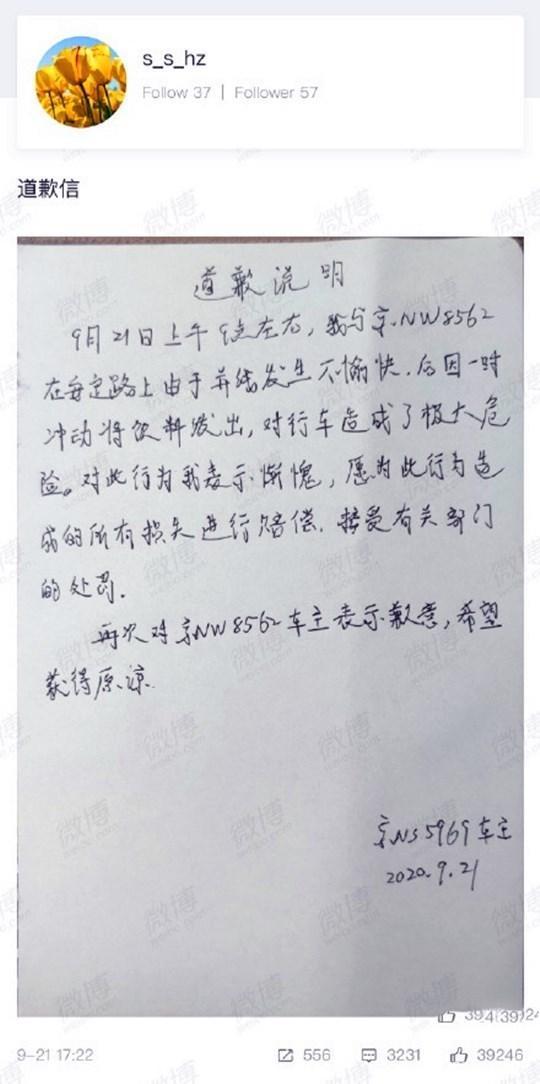 s_s_hz
Follow 37 | Follower 57
道歉信
道歉说明
9月21日上午9点左右，我与京·NW8562
在安定路上由于并线发生不愉快．后因一时
冲动将饮料发出，对行车造成了极大危
险。对此行为我表示惭愧，愿为此行为造
成的所有损失进行赔偿．接受有关部门
的处罚．
再次对京NW8562车主表示歉意，希望
获得原谅．
京NS5969车主
2020.9.21
9-21 17:22
556
3231
39246